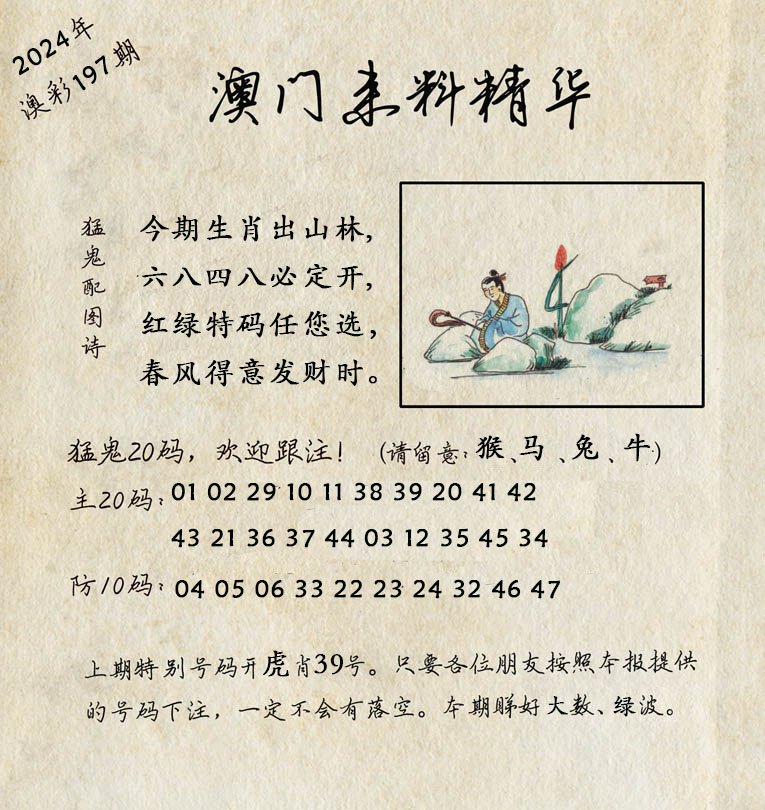 2024年
澳彩197期
澳门来料精华
猛鬼配图诗
今期生肖出山林,
六八四八必定开,
红绿特码任您选,
春风得意发财时。
猛鬼20码，欢迎跟注！（请留意：猴、马、兔、牛）
主20码：01 02 29 10 11 38 39 20 41 42
43 21 36 37 44 03 12 35 45 34
防10码：04 05 06 33 22 23 24 32 46 47
上期特别号码开虎肖39号。只要各位朋友按照本报提供
的号码下注，一定不会有落空。本期睇好大数、绿波。